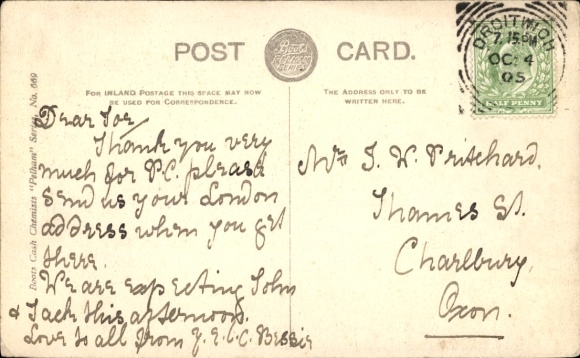 POST CARD.
Boots
FOR INLAND POSTAGE THIS SPACE MAY NOW
BE USED FOR CORRESPONDENCE.
THE ADDRESS ONLY TO BE
WRITTEN HERE.
DROITWICH
7.15PM
OC 4
05
HALF PENNY
Boots Cash Chemists "Pelham" Series. No. 669
Dear Joe
Thank you very
much for P.C. please
send us your London
address when you get
there.
We are expecting John
& Jack this afternoon.
Love to all from J. E. C. Bessie
Mr J. W. Pritchard.
Thames St.
Charlbury.
Oxon.